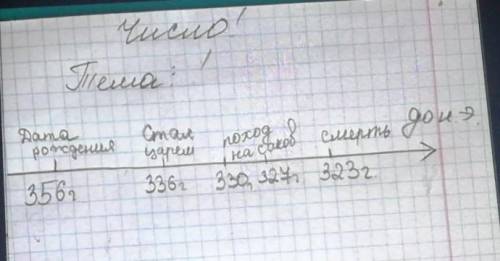 Число!
Тема: !
Дата рождения
Стал царем
поход на саков
смерть
до н.э.
356г 336г 330, 327г 323г